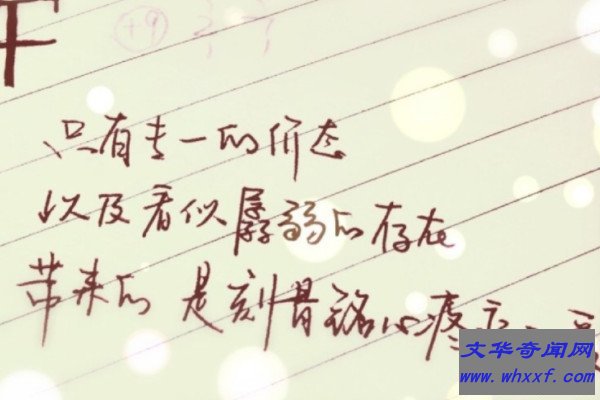 只有专一的价态
以及看似孱弱的存在
带来的 是刻骨铭心疼
文华奇闻网
www.whxxf.com